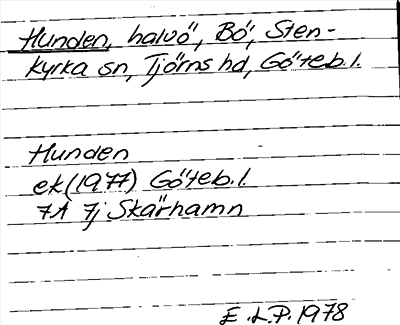 Hunden, halvö, Bö, Sten-
kyrka sn, Tjörns hd, Göteb. l.
Hunden
ek (1977) Göteb. l.
7A 7j Skärhamn
E.L.P. 1978